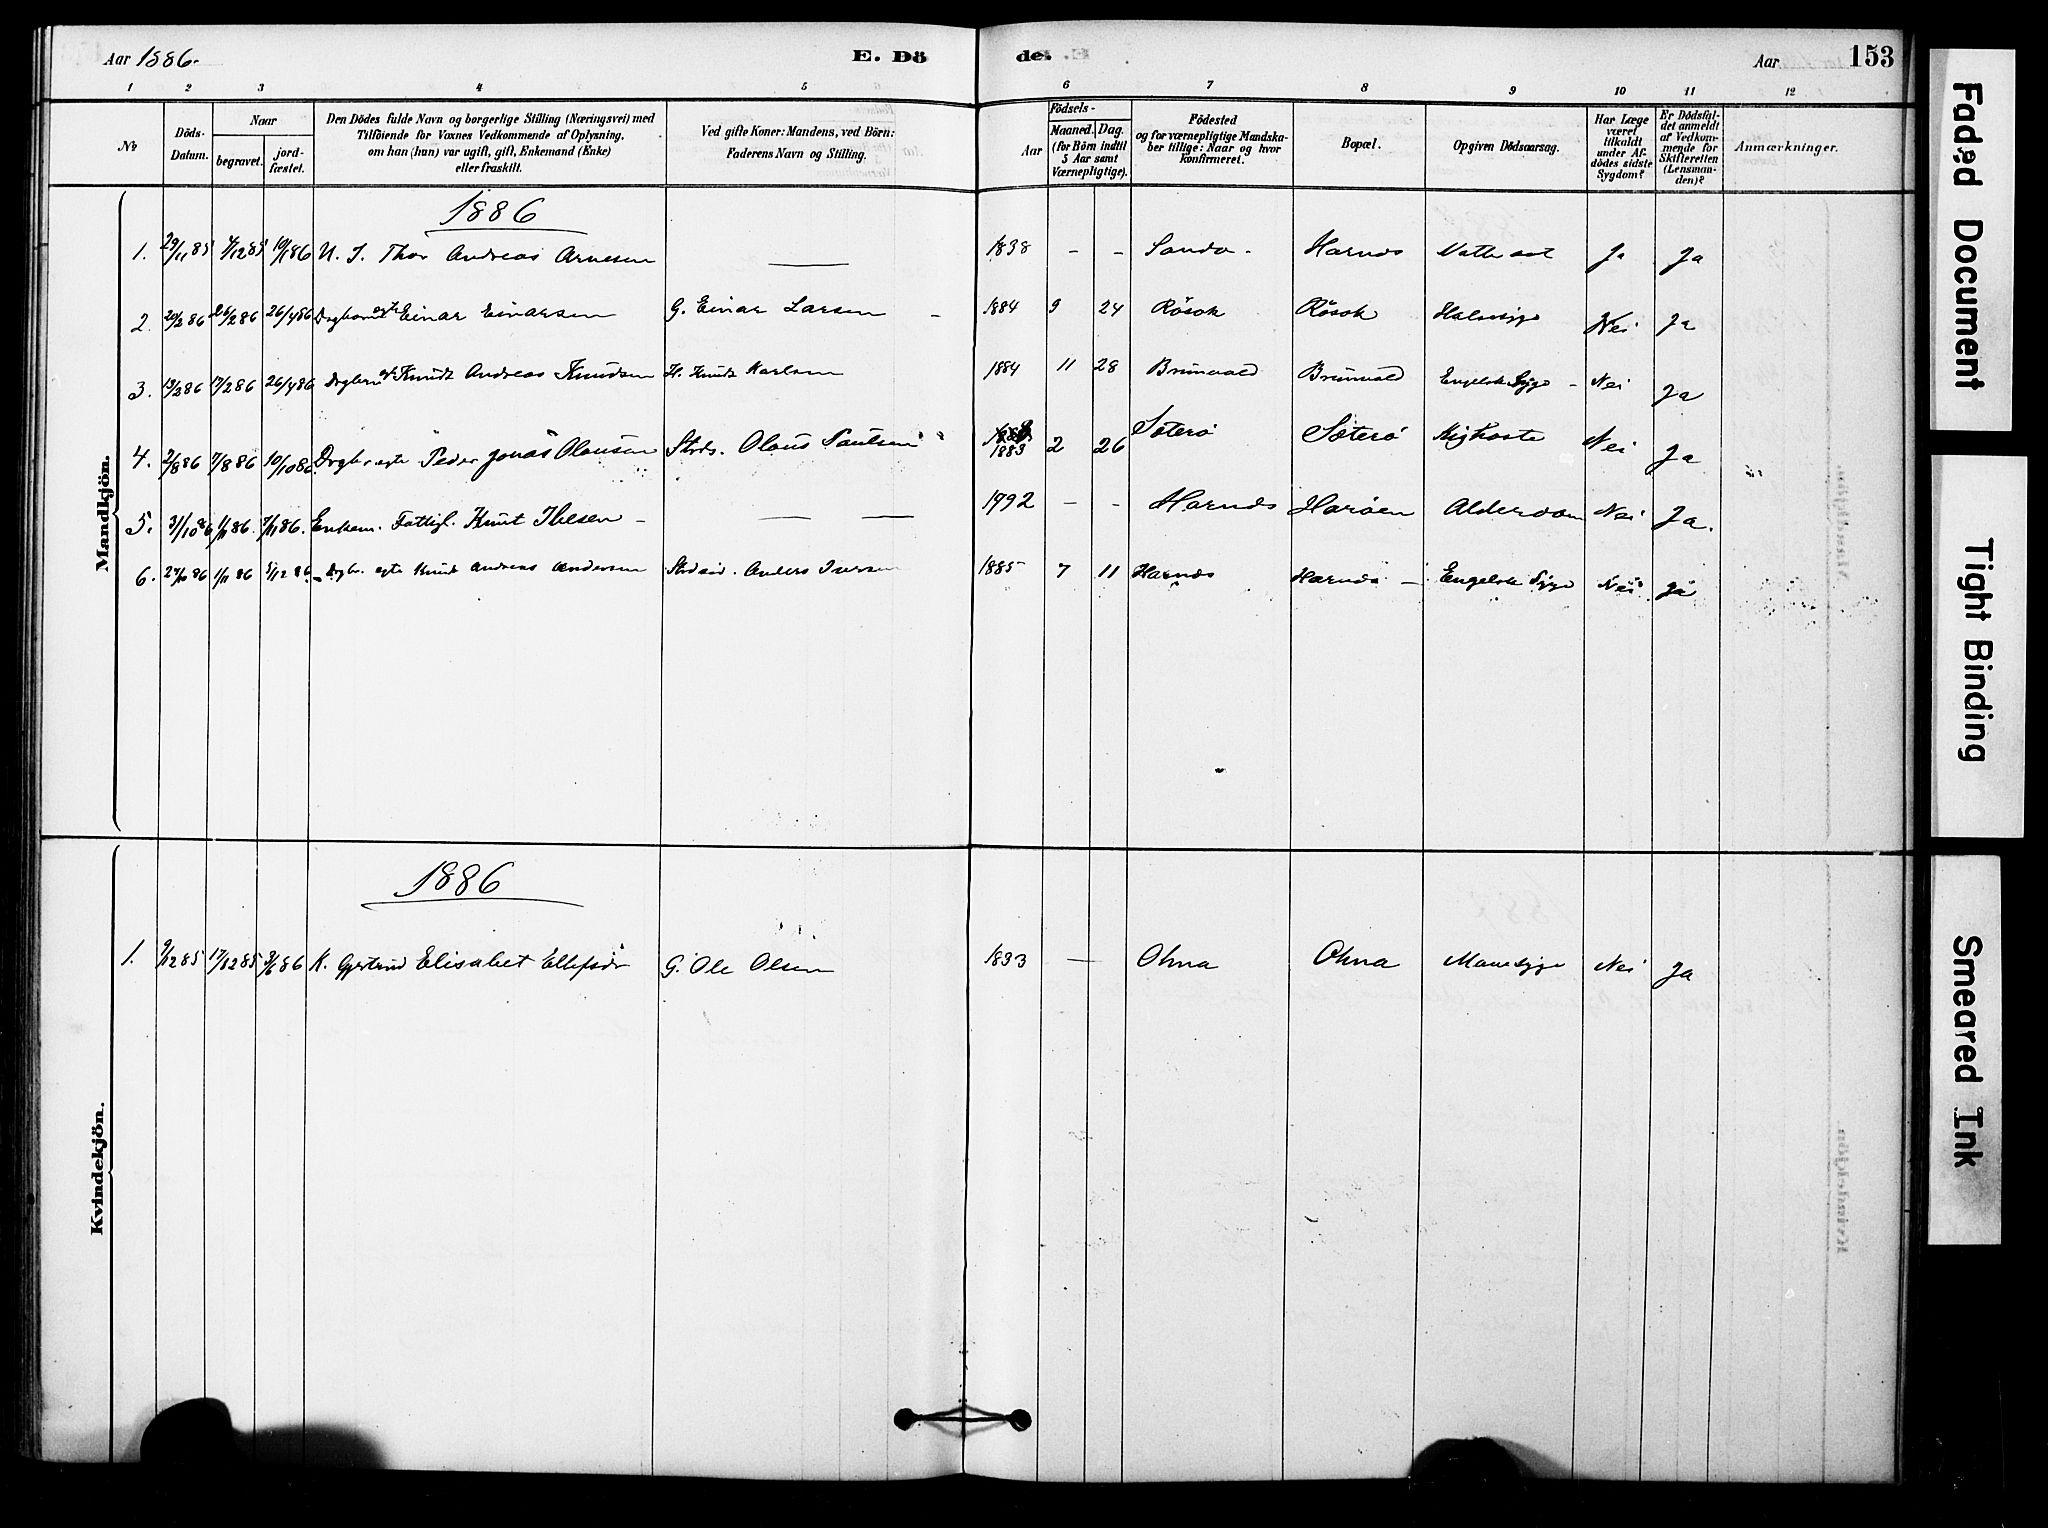 Aar 1886.
E. Dö
de.
Aar
153
1 2 3 4 5 6 7 8 9 10 11 12
No
Döds-Datum.
Naar
begravet.
jord-fæstet.
Den Dödes fulde Navn og borgerlige Stilling (Næringsvei) med
Tilföiende for Voxnes Vedkommende af Oplysning,
om han (hun) var ugift, gift, Enkemand (Enke)
eller fraskilt.
Ved gifte Koner: Mandens, ved Börn:
Faderens Navn og Stilling.
Födsels-
Aar
Maaned. Dag.
(for Börn indtil
5 Aar samt
Værnepligtige).
Födested
og for værnepligtige Mandska-
ber tillige: Naar og hvor
konfirmeret.
Bopæl.
Opgiven Dödsaarsag.
Har Læge
været
tilkaldt
under Af-
dödes sidste
Sygdom?
Er Dödsfal-
det anmeldt
af Vedkom-
mende for
Skifteretten
(Lensman-
den)?
Anmærkninger.
Mandkjön.
1886
1. 29/11 85 4/12 85 10/1 86 U. S. Thor Andreas Arnesen — 1838 - - Sandø - Harnæs Ja Ja
2. 20/2 86 26/2 86 26/4 86 Einar Einarsen G. Einar Larsen - 1884 9 24 Rösok Rösok Halssyge Nei Ja
3. 13/2 86 17/2 86 26/4 86 Knudt Andreas Knudsen H. Knudt Karlsen 1884 11 28 Brunvold Brunvold Engelsk Syge - Nei Ja
4. 2/8 86 7/8 86 10/10 86 Drgb. ægte Peder Jonas Olausen Olaus Paulsen 1883 2 26 Sæterö Sæterö Kighoste Nei Ja
5. 31/10 86 1/11 86. 7/11 86. Enkem. Fattigl. Knut Iversen - — — 1792 - - Harnæs Haröen Alderdom Nei Ja.
6. 86 1/11 86 5/12 86. Drgb. ægte Knud Andreas Andersen Anders Iversen 1885 7 11 Harnæs Harnæs - Engelsk Syge Nei Ja
Kvindekjön.
1886
1. 9/12 85 17/12 85 86 K. Gjertrud Elisabet Ellefsdr G. Ole Olsen 1833 — Ohna Ohna Mavesyge Nei Ja
Faded Document
Tight Binding
Smeared Ink